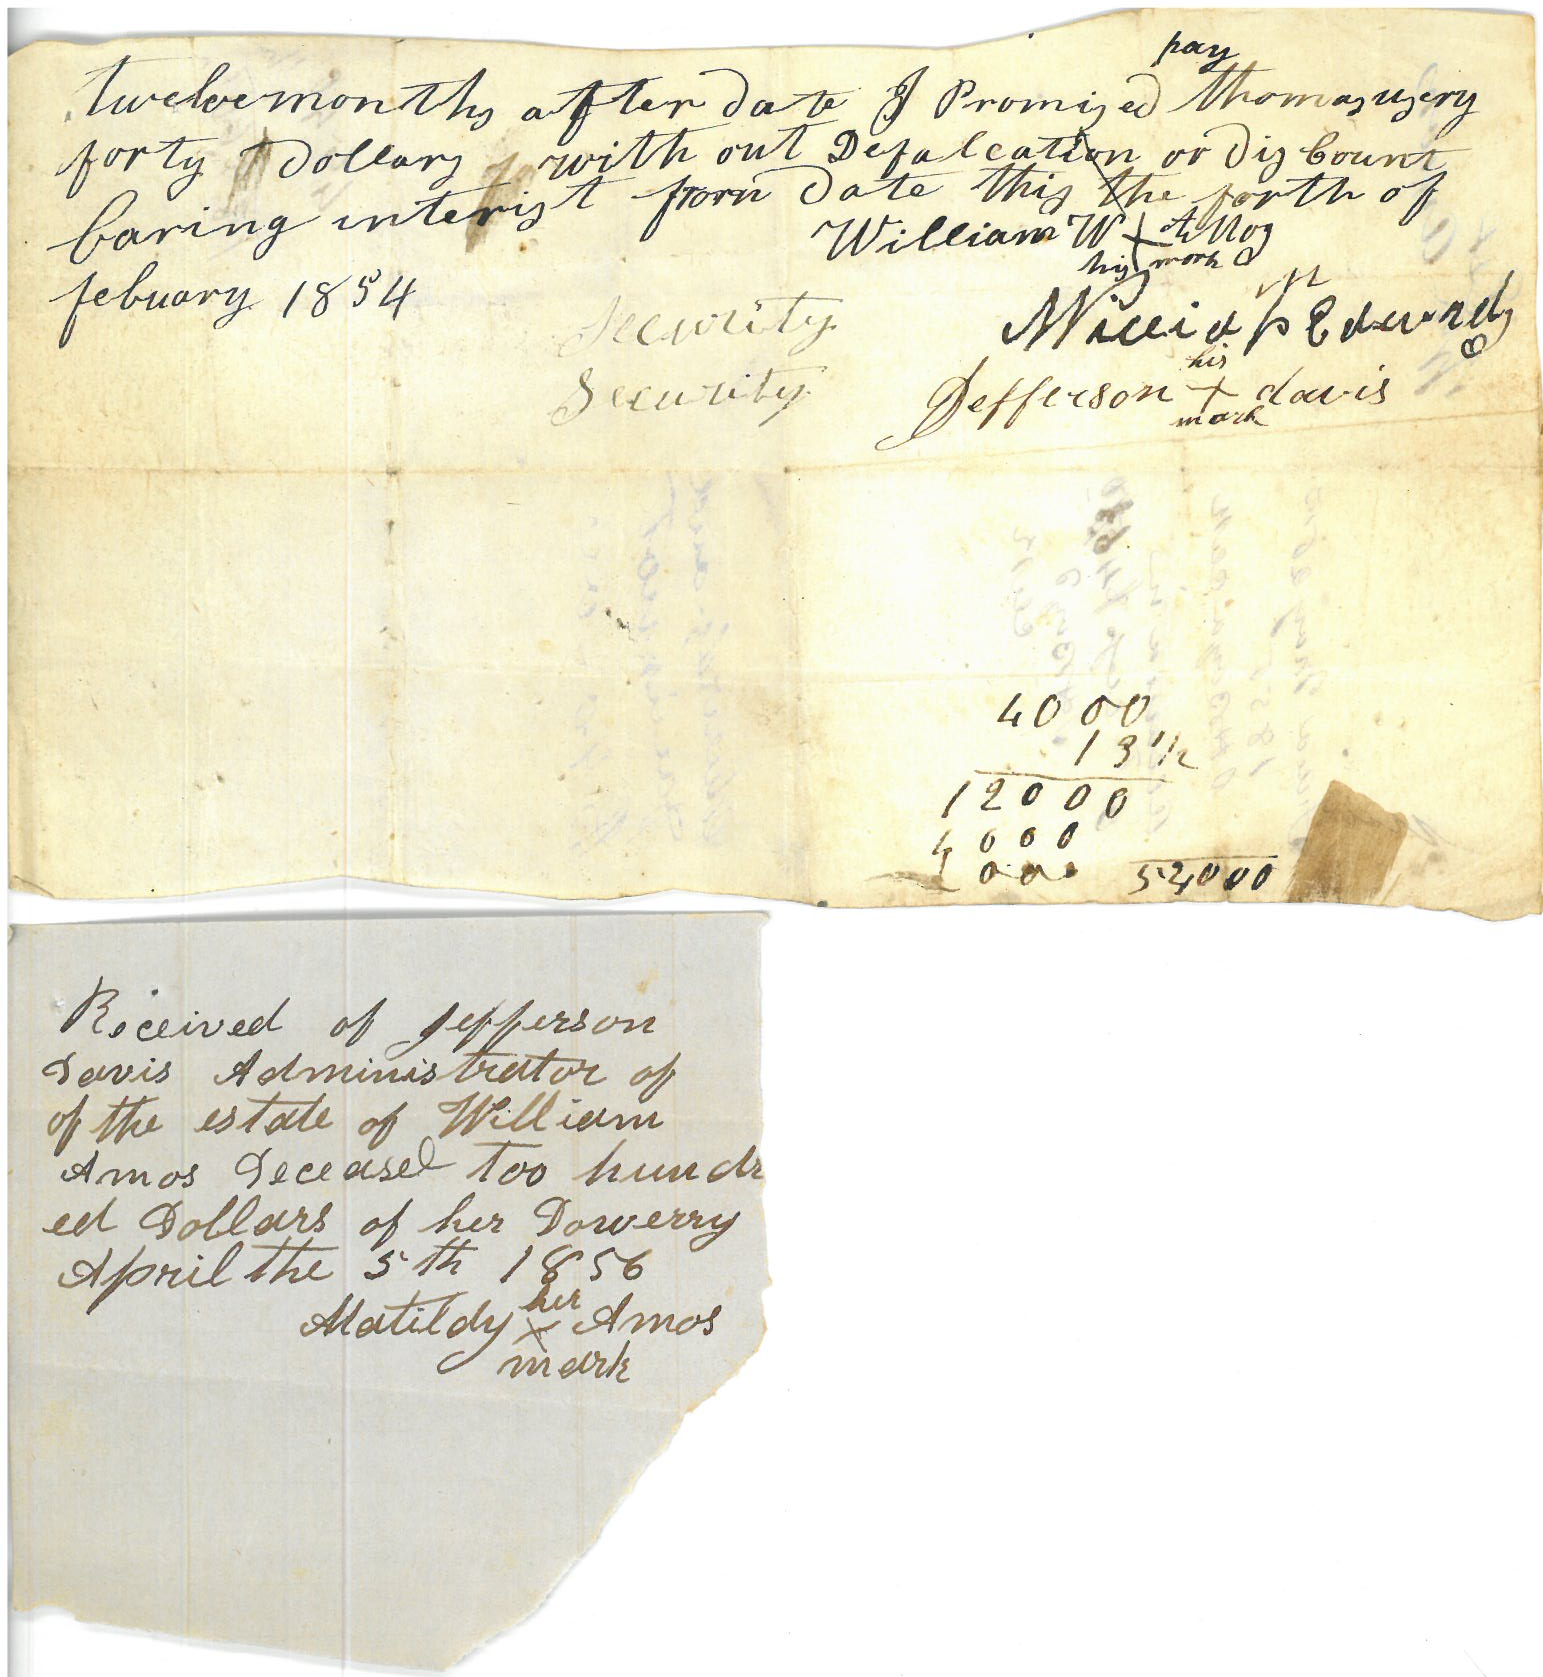 pay
twelvemonths after date I Promised thomas usery
forty dollars with out Defalcation or discount
baring interist from date this the forth of
febuary 1854
William W X Amos
his mark
Security
Willia Edwards
Security
his
Jefferson X davis
mark
4000
13 1/2
12000
4000
54000
Received of Jefferson
Davis Administrator of
of the estate of William
Amos Deceased too hundr
ed Dollars of her Dowerry
April the 5th 1856
her
Matildy X Amos
mark